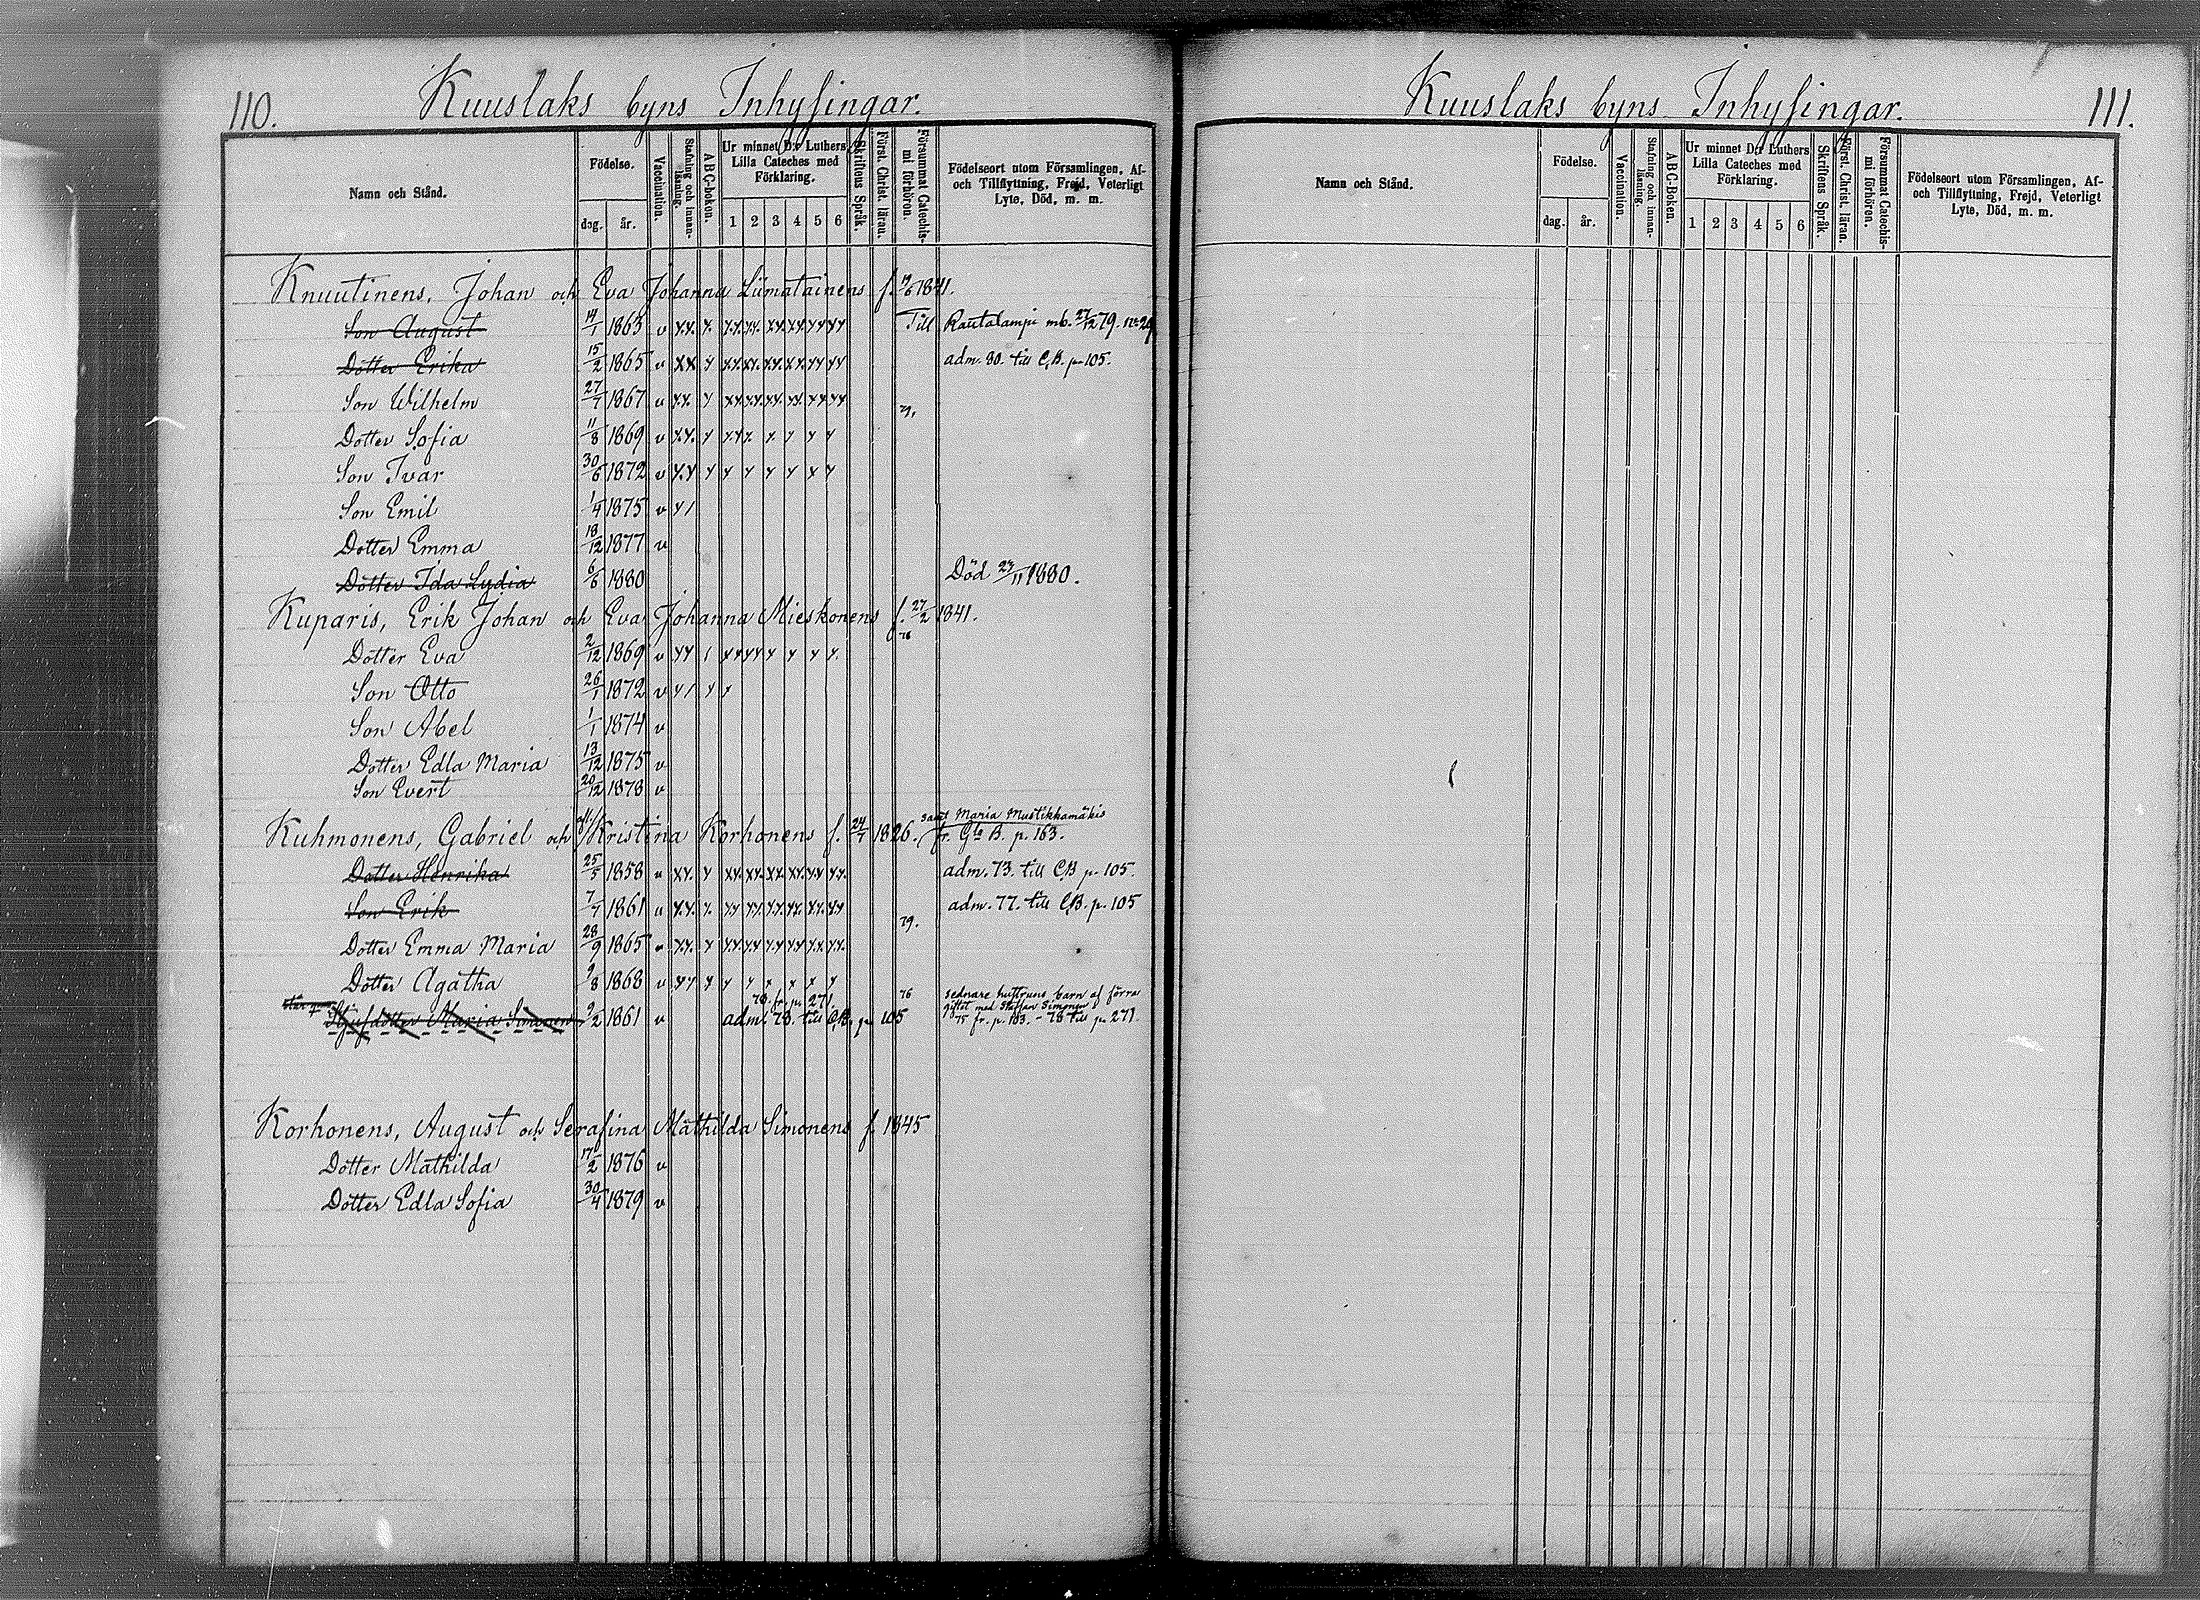 110. Kuuslaks byns Inhysingar.
Namn och Stånd. Födelse. dag. år. Vaccination. Stafning och innanläsning. ABC-bokon. Ur minnet D:r Luthers Lilla Cateches med Förklaring. 1 2 3 4 5 6 Skriftens Språk. Först. Christ. läran. Försummat Catechismi förhören. Födelseort utom Församlingen, Af- och Tillflyttning, Frejd, Veterligt Lyte, Död, m. m.
Knuutinens, Johan och Eva Johanna Liimatainens f. 19/6 1841.
Son August 14/1 1863 v Till Rautalampi mb. 27/12 79. No 29
Dotter Erika 15/2 1865 v adm. 80. till C.B. p. 105.
Son Wilhelm 27/7 1867 v 79.
Dotter Sofia 11/8 1869 v
Son Ivar 30/6 1872 v
Son Emil 1/4 1875 v
Dotter Emma 18/12 1877 v
Dotter Ida Lydia 6/6 1880 Död 23/11 1880.
Kuparis, Erik Johan och Eva Johanna Mieskonens f. 27/2 1841.
Dotter Eva 2/12 1869 v 78
Son Otto 26/1 1872 v
Son Abel 1/1 1874 v
Dotter Edla Maria 13/12 1875 v
Son Evert 20/12 1878 v
Kuhmonens, Gabriel och Kristina Korhonens f. 24/7 1826. samt Maria Mustikkamäkis
fr. Gla B. p. 163.
Dotter Henrika 25/5 1858 v adm. 73. till C.B p. 105.
Son Erik 7/7 1861 v adm. 77. till C.B. p. 105
Dotter Emma Maria 28/9 1865 v 79.
Dotter Agatha 9/8 1868 v
Styfdotter Maria Simonen 9/2 1861 v 78. fr. p. 271 76 sednare hustruns barn af förra
adm. 78. till C.B. p. 105 giftet med Staffan Simonen
75 fr. p. 163. - 78 till p. 271.
Korhonens, August och Serafina Mathilda Simonens f. 1845
Dotter Mathilda 17/2 1876 v
Dotter Edla Sofia 30/4 1879 v
Kuuslaks byns Inhysingar. 111.
Namn och Stånd. Födelse. dag. år. Vaccination. Stafning och innanläsning. ABC-Boken. Ur minnet D:r Luthers Lilla Cateches med Förklaring. 1 2 3 4 5 6 Skriftens Språk. Först. Christ. läran. Försummat Catechismi förhören. Födelseort utom Församlingen, Af- och Tillflyttning, Frejd, Veterligt Lyte, Död, m. m.